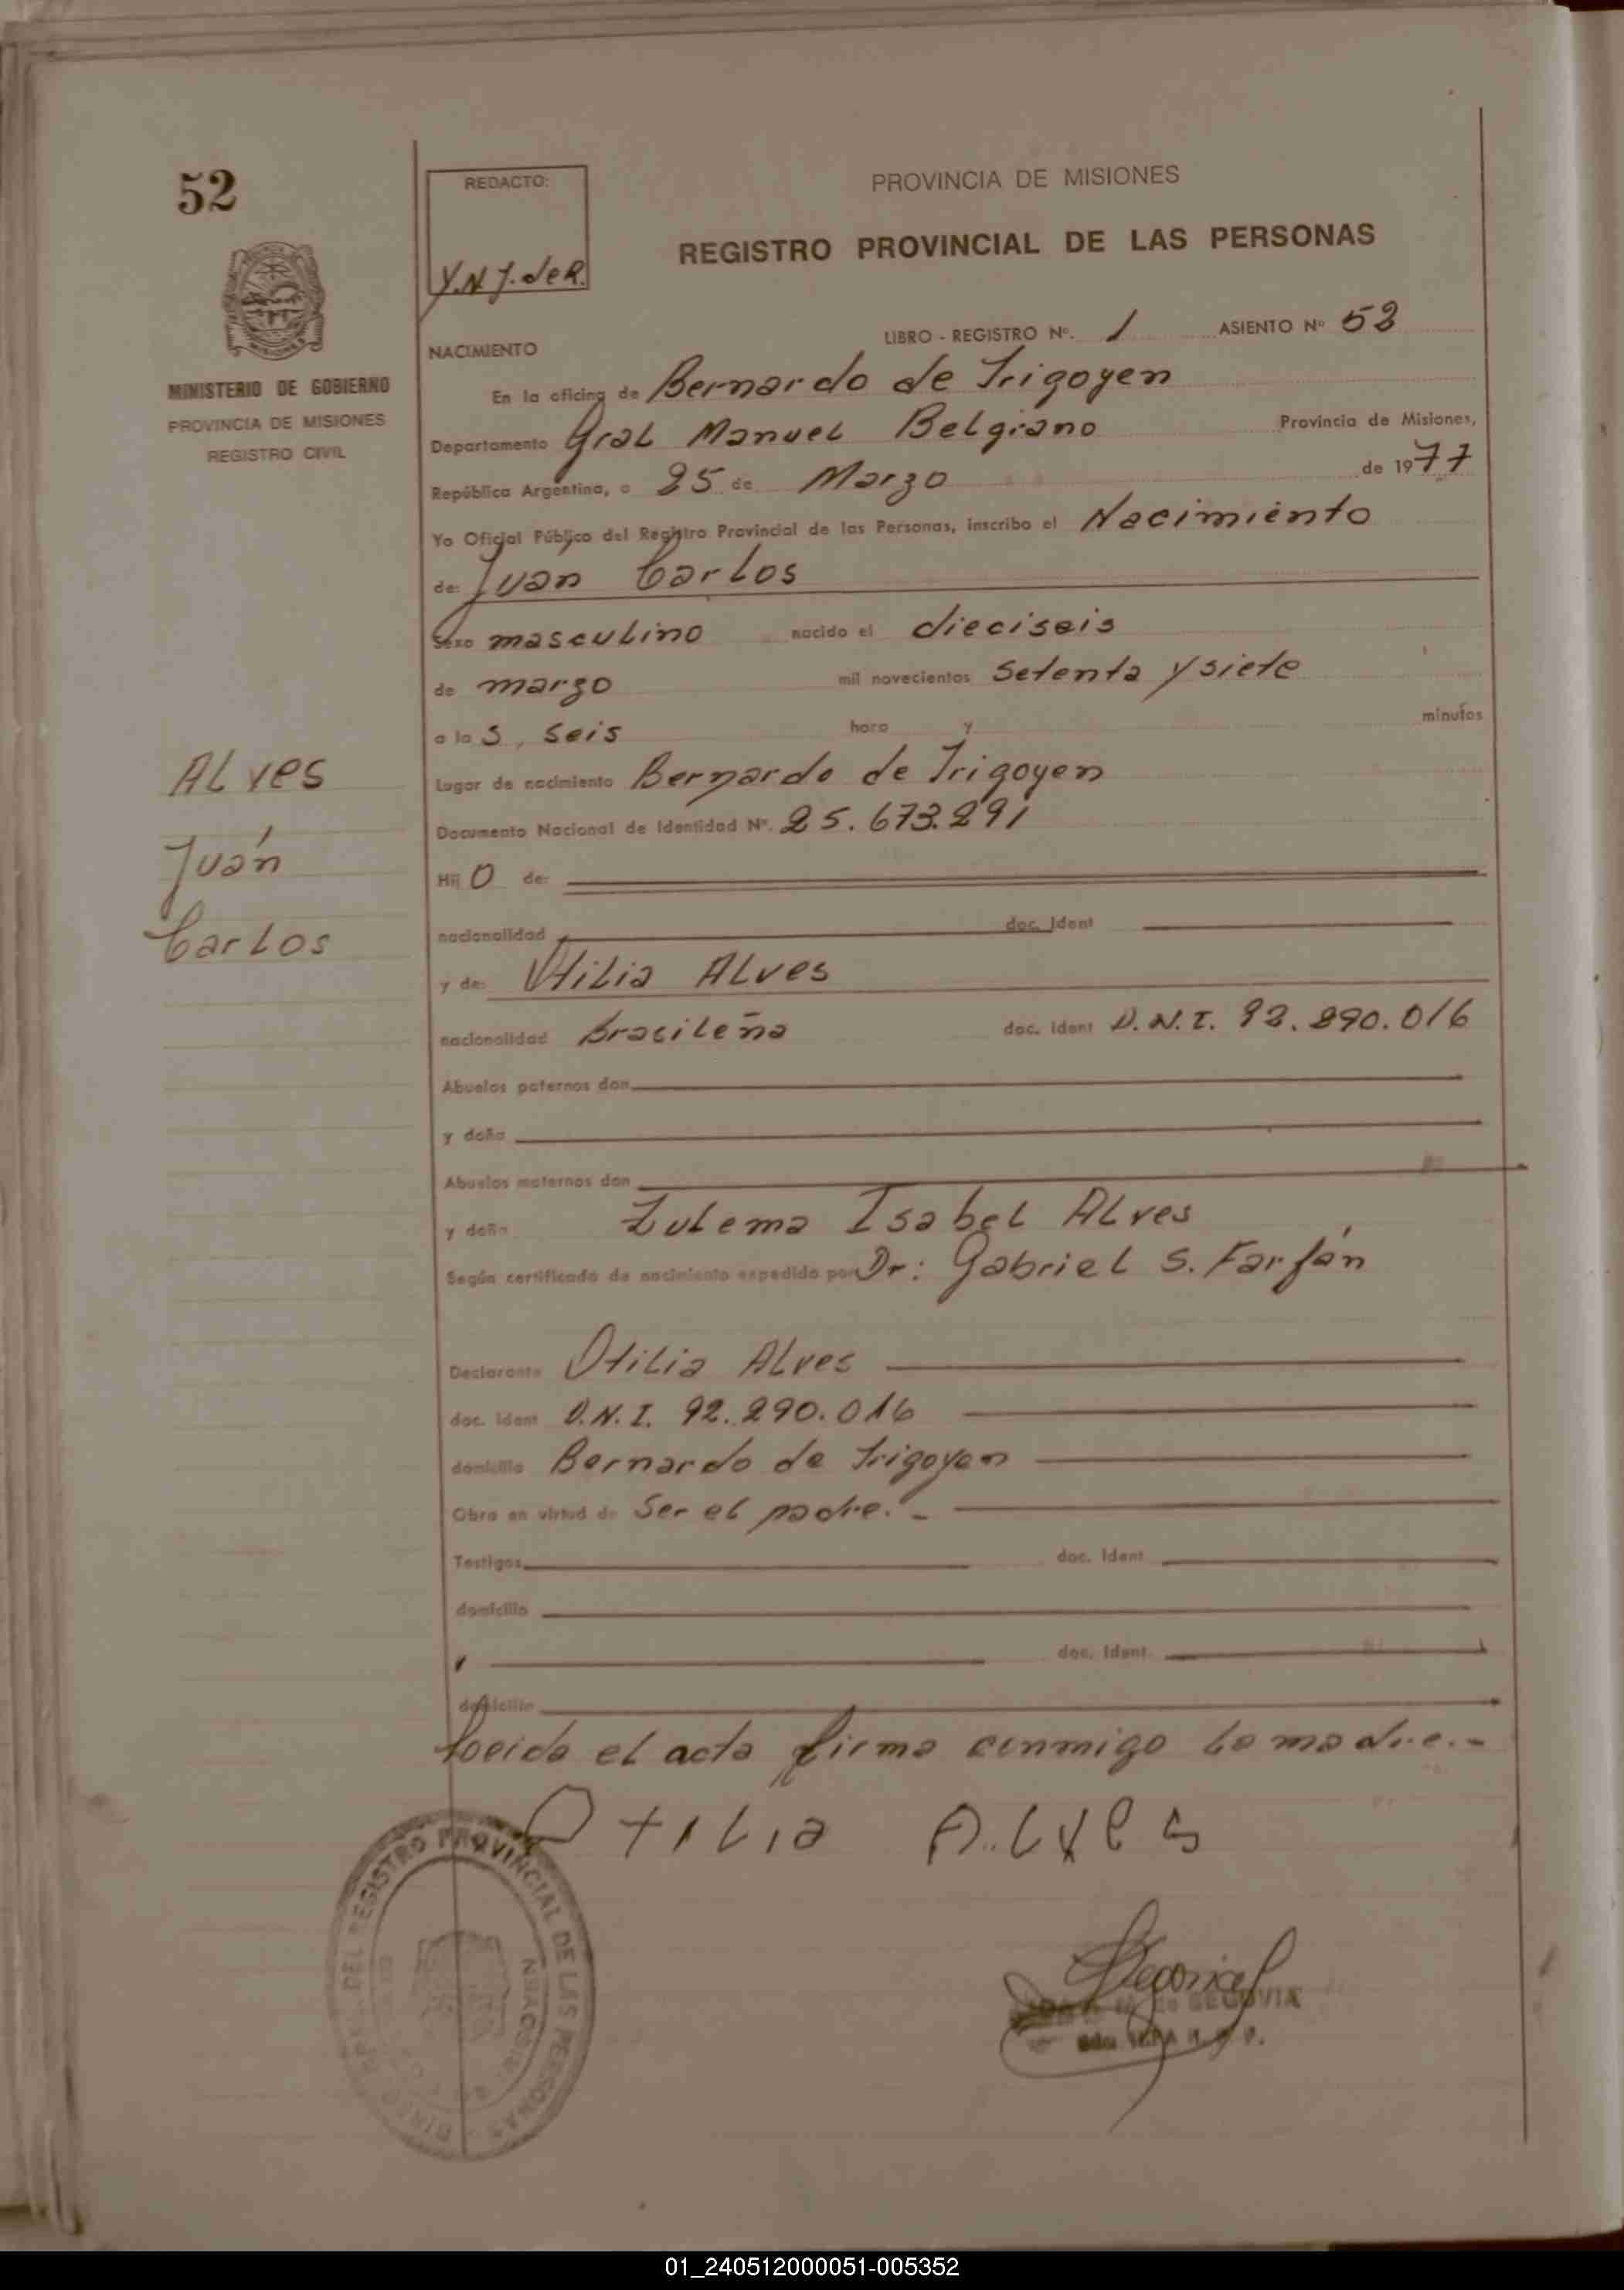 52
REDACTO:
Y.N J. de R.
PROVINCIA DE MISIONES
REGISTRO PROVINCIAL DE LAS PERSONAS
MINISTERIO DE GOBIERNO
PROVINCIA DE MISIONES
REGISTRO CIVIL
NACIMIENTO LIBRO - REGISTRO Nº. 1 ASIENTO Nº 52
En la oficina de Bernardo de Irigoyen
Departamento Gral Manuel Belgrano Provincia de Misiones,
República Argentina, a 25 de Marzo de 1977
Yo Oficial Público del Registro Provincial de las Personas, inscribo el Nacimiento
de: Juan Carlos
Sexo masculino nacido el dieciseis
de marzo mil novecientos Setenta y siete
a la s, seis hora y minutos
Alves
Juán
Carlos
Lugar de nacimiento Bernardo de Irigoyen
Documento Nacional de Identidad Nº. 25.673.291
Hij o de:
nacionalidad doc. Ident
y de: Otilia Alves
nacionalidad Brasileña doc. Ident D.N.I. 92.290.016
Abuelos paternos don
y doña
Abuelos maternos don
y doña Zulema Isabel Alves
Según certificado de nacimiento expedido por Dr: Gabriel S. Farfán
Declarante Otilia Alves
doc. Ident D.N.I. 92.290.016
domicilio Bernardo de Irigoyen
Obra en virtud de Ser el padre.-
Testigos doc. Ident
domicilio
doc. Ident
domicilio
Leída el acta firma conmigo la madre.-
Otilia Alves
DEL REGISTRO PROVINCIAL DE LAS PERSONAS
SEGOVIA
01_240512000051-005352